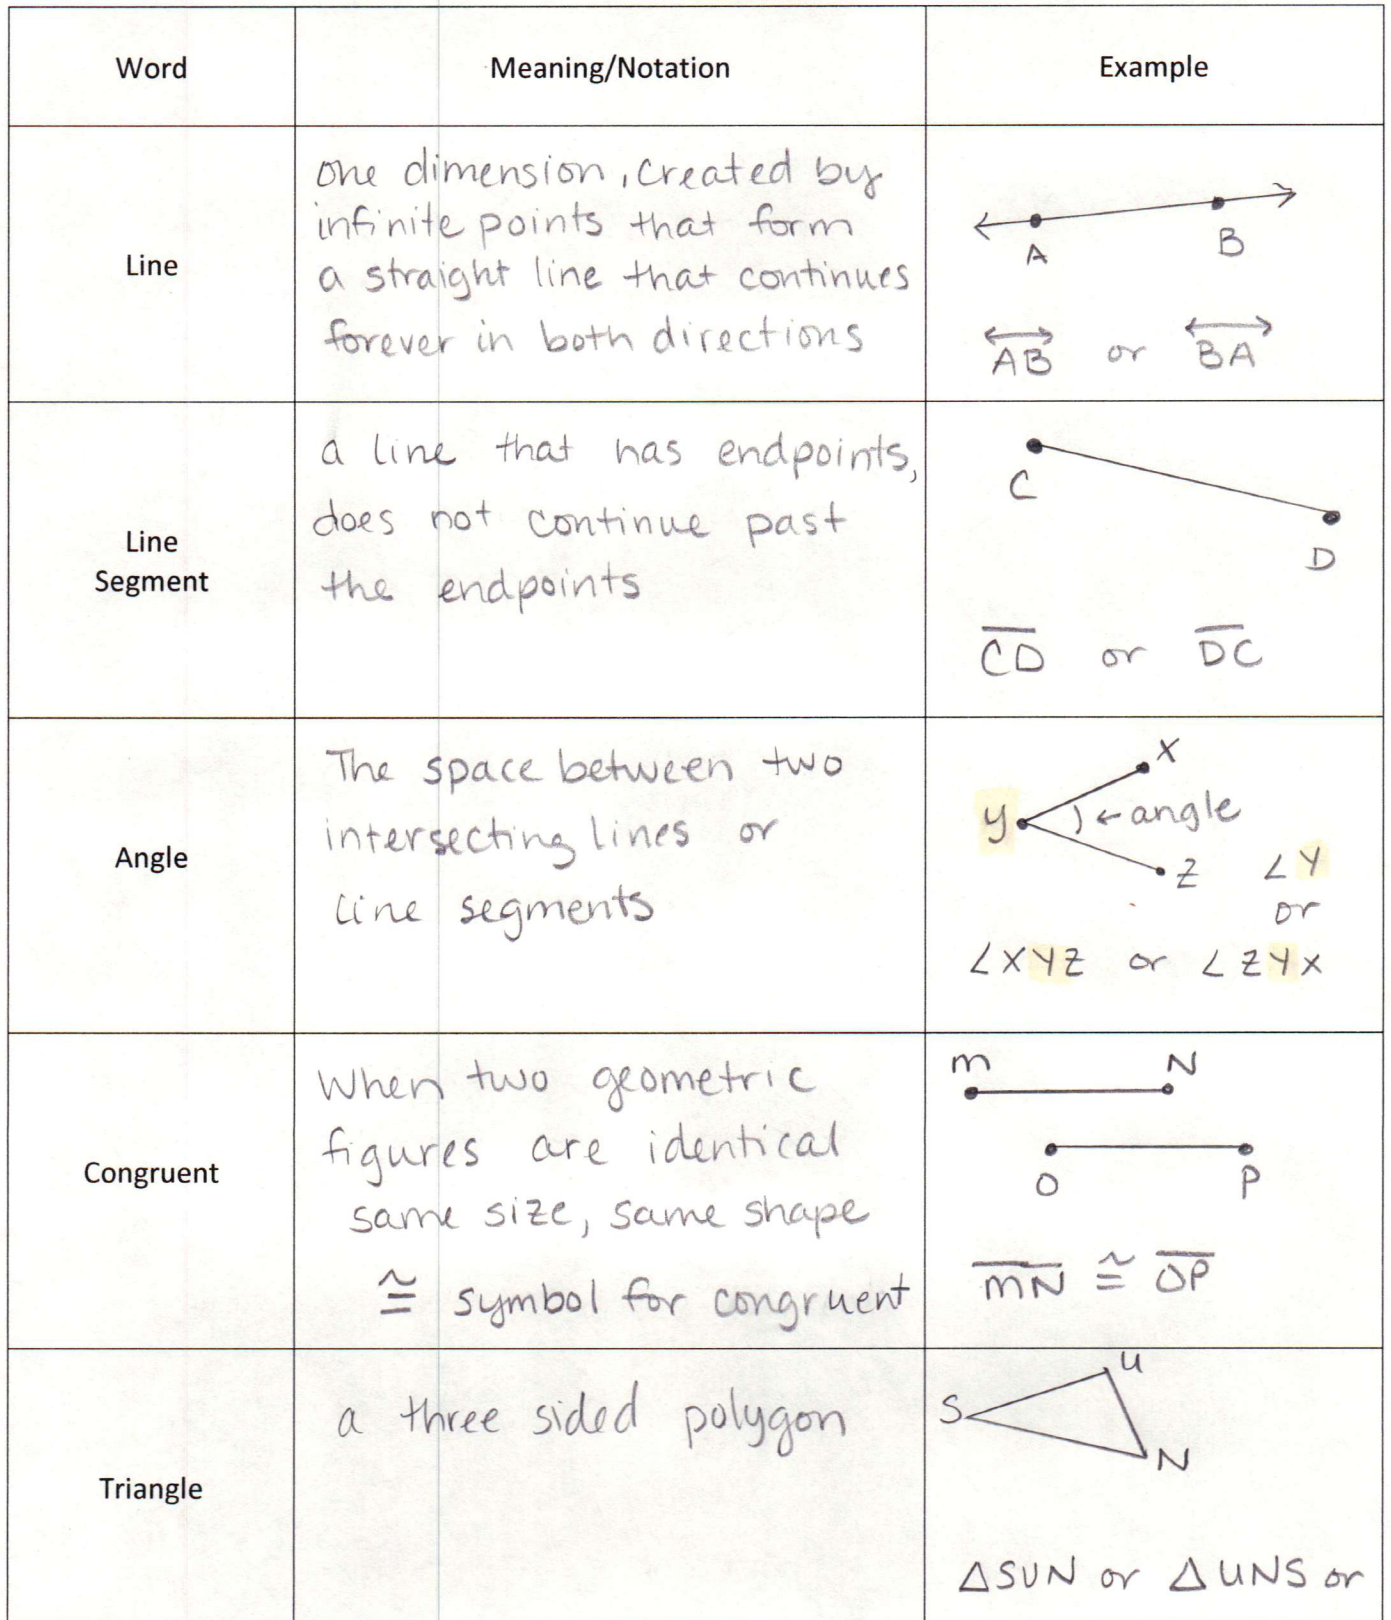 Word
Meaning/Notation
Example
Line
one dimension, created by
infinite points that form
a straight line that continues
forever in both directions
A
B
AB or BA
Line
Segment
a line that has endpoints,
does not continue past
the endpoints
C
D
CD or DC
Angle
The space between two
intersecting lines or
line segments
X
y ← angle
Z ∠Y
or
∠XYZ or ∠ZYX
Congruent
When two geometric
figures are identical
same size, same shape
≅ symbol for congruent
m N
O P
mN ≅ OP
Triangle
a three sided polygon
U
S
N
△SUN or △UNS or